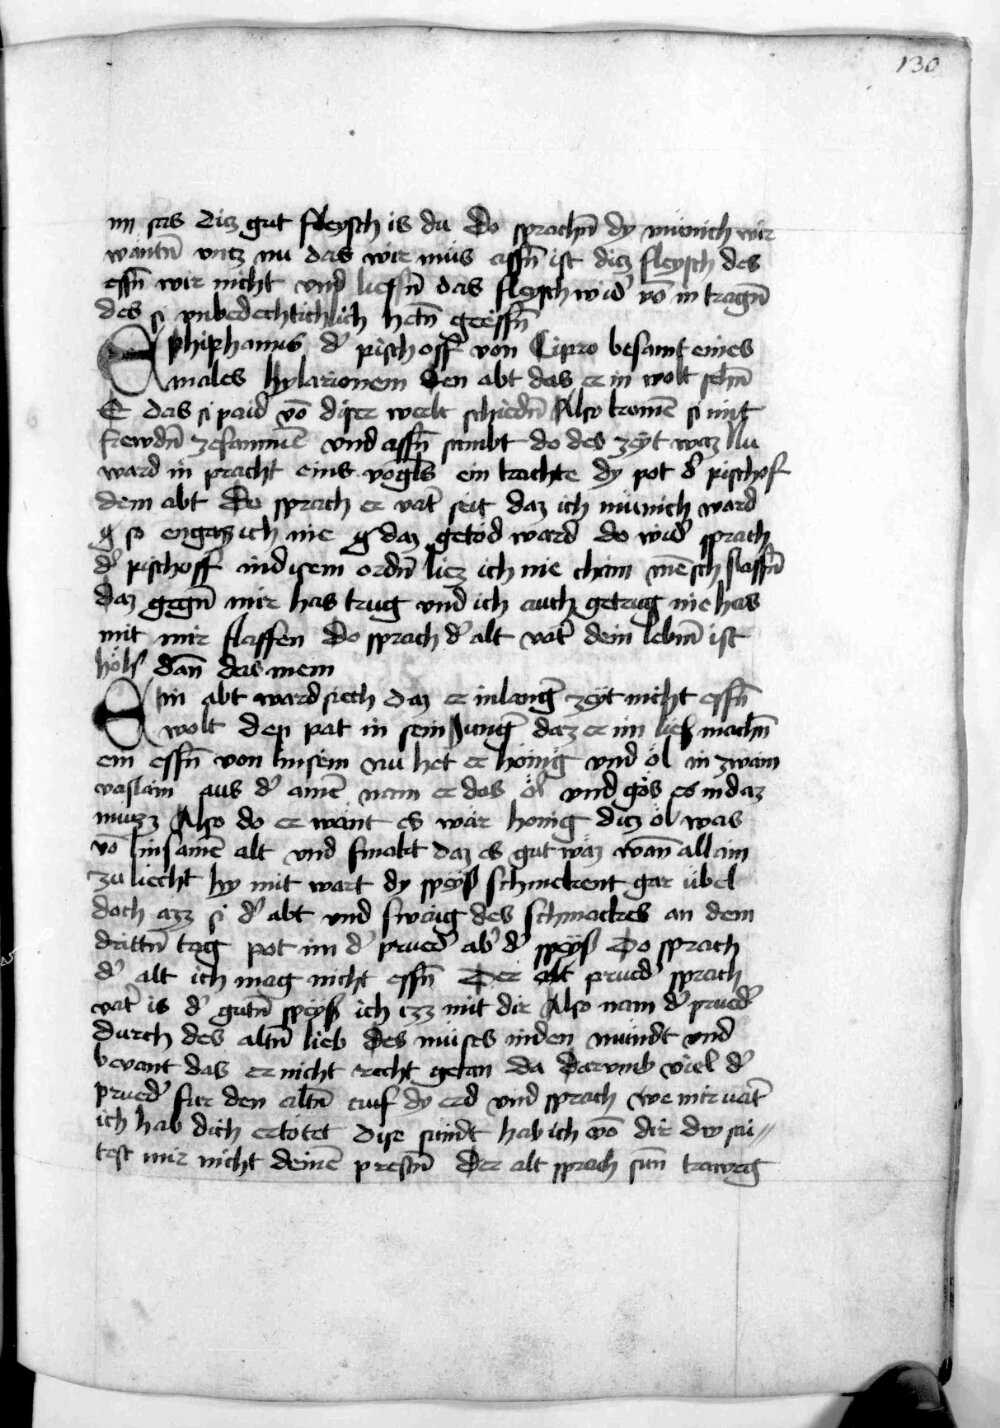 130
im sas diz gut fleysch is du Do sprachn̄ dy münich wir
wāntn̄ vntz nu das wir müs assn̄ ist ditz fleysch des
essn̄ wir nicht vnd liessn̄ das fleysch wid' vō in tragn̄
des si vnbedechtichlich hetn̄ geessn̄
Ephiphanius d' pischoff von Cipro besamt eines
males hylarionem den abt das er in wolt sehn̄
E das si paid vō diser werlt schiedn̄ Also komē si mit
frewdn̄ zesammē vnd assn̄ sambt do des zeyt waz Nu
ward in pracht eins vogls ein trachte dy pot d' pischof
dem abt Do sprach er vat' seit daz ich münich ward
so engas ich nie daz getöd ward do wid' sprach
d' pischoff in disem ordn̄ liez ich nie chain mēsch slaffn̄
daz gegn̄ mir has trug vnd ich auch getrug nie has
mit mir slaffen Do sprach d' alt vat' dein lebn̄ ist
höh' dan̄ das mein
Ein abt ward siech daz er in lang' zeyt nicht essn̄
wolt den pat in sein Jung' daz er im lies machn̄
ein essn̄ von linsein nu het er hönig vnd öl in zwain
vaslain aus d' ainē nam er das öl vnd gös es in daz
muzz Also do er wänt es wär honig ditz öl was
vō linsamē alt vnd smakt daz es gut waz wan̄ allain
zu liecht hy mit wart dy speyß schmekent gar übel
doch azz si d' abt vnd sweig des schmackes an dem
drittn̄ tag pot im d' prued' ab' d' speyß Do sprach
d' alt ich mag nicht essn̄ Der alt prued' sprach
vat' is d' gutn̄ speyß ich izz mit dir Also nam d' prued'
durch des altn̄ lieb des müses in den mundt vnd
bevant das er nicht recht getan da darvmb viel d'
prued' für den altn̄ auf dy erd vnd sprach we mir vat'
ich hab dich ertotet dise sündt hab ich vō dir dw sai//
test mir nicht deinē prestn̄ Der alt sprach sun̄ trawrig